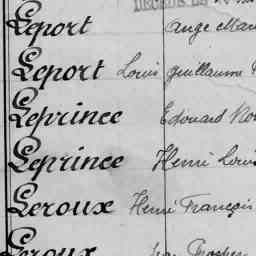 DÉCÉDÉ LE
Leport Ange
Leport Louis Guillaume
Leprince Edouard
Leprince Henri Louis
Leroux Henri François
Leroux